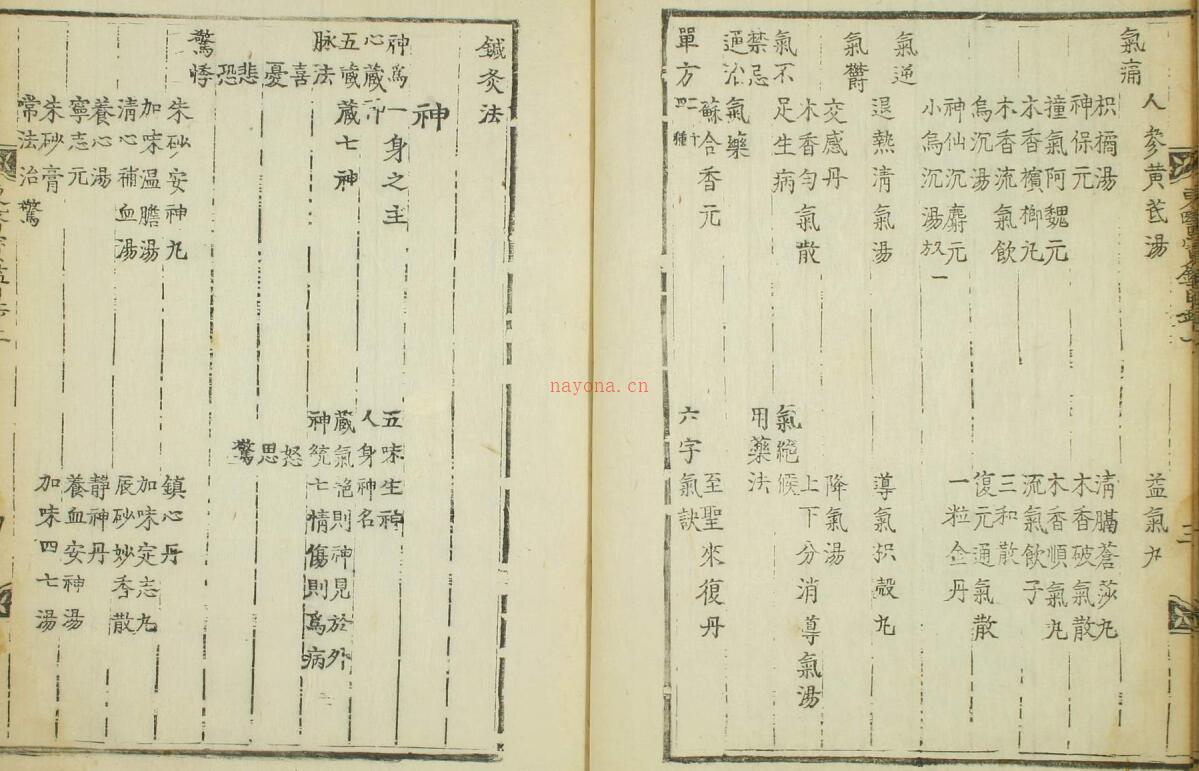 東醫寶鑑目錄上
三
人參黃芪湯 益氣丸
氣痛
枳橘湯 清膈蒼莎丸
神保元 木香破氣散
撞氣阿魏元 木香順氣丸
木香檳榔丸 流氣飲子
木香流氣飲 三和散
烏沉湯 復元通氣散
神仙沉麝元 一粒金丹
小烏沉湯放一
氣逆
退熱清氣湯 導氣枳殼丸
氣鬱
交感丹 降氣湯
木香勻氣散 上下分消導氣湯
氣不足生病 氣絕候
禁忌 用藥法
通治氣藥
蘇合香元 至聖來復丹
單方二十四種 六字氣訣
鍼灸法
神
神爲一身之主 五味生神
心藏神 人身神名
五藏藏七神 藏氣絶則神見於外
脉法 神統七情傷則爲病
喜 怒
憂 思
悲 驚
恐
驚悸
朱砂安神丸 鎮心丹
加味温膽湯 加味定志丸
清心補血湯 辰砂妙香散
養心湯 靜神丹
寧志元 養血安神湯
朱砂膏 加味四七湯
常法治驚
nayona.cn